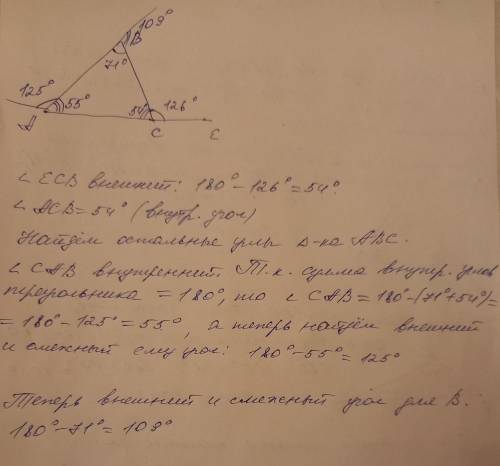 109°
B
71°
125°
55°
54°
126°
A
C
E
∠ ECB внешний: 180° - 126° = 54°.
∠ ACB = 54° (внутр. угол)
Найдём остальные углы Δ-ка ABC.
∠ CAB внутренний. Т.к. сумма внутр. углов
треугольника = 180°, то ∠ CAB = 180° - (71° + 54°) =
= 180° - 125° = 55°, а теперь найдём внешний
и смежный ему угол: 180° - 55° = 125°
Теперь внешний и смежный угол для B.
180° - 71° = 109°